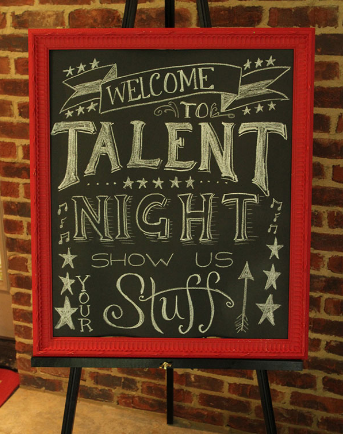 WELCOME
TO
TALENT
NIGHT
SHOW US
YOUR Stuff